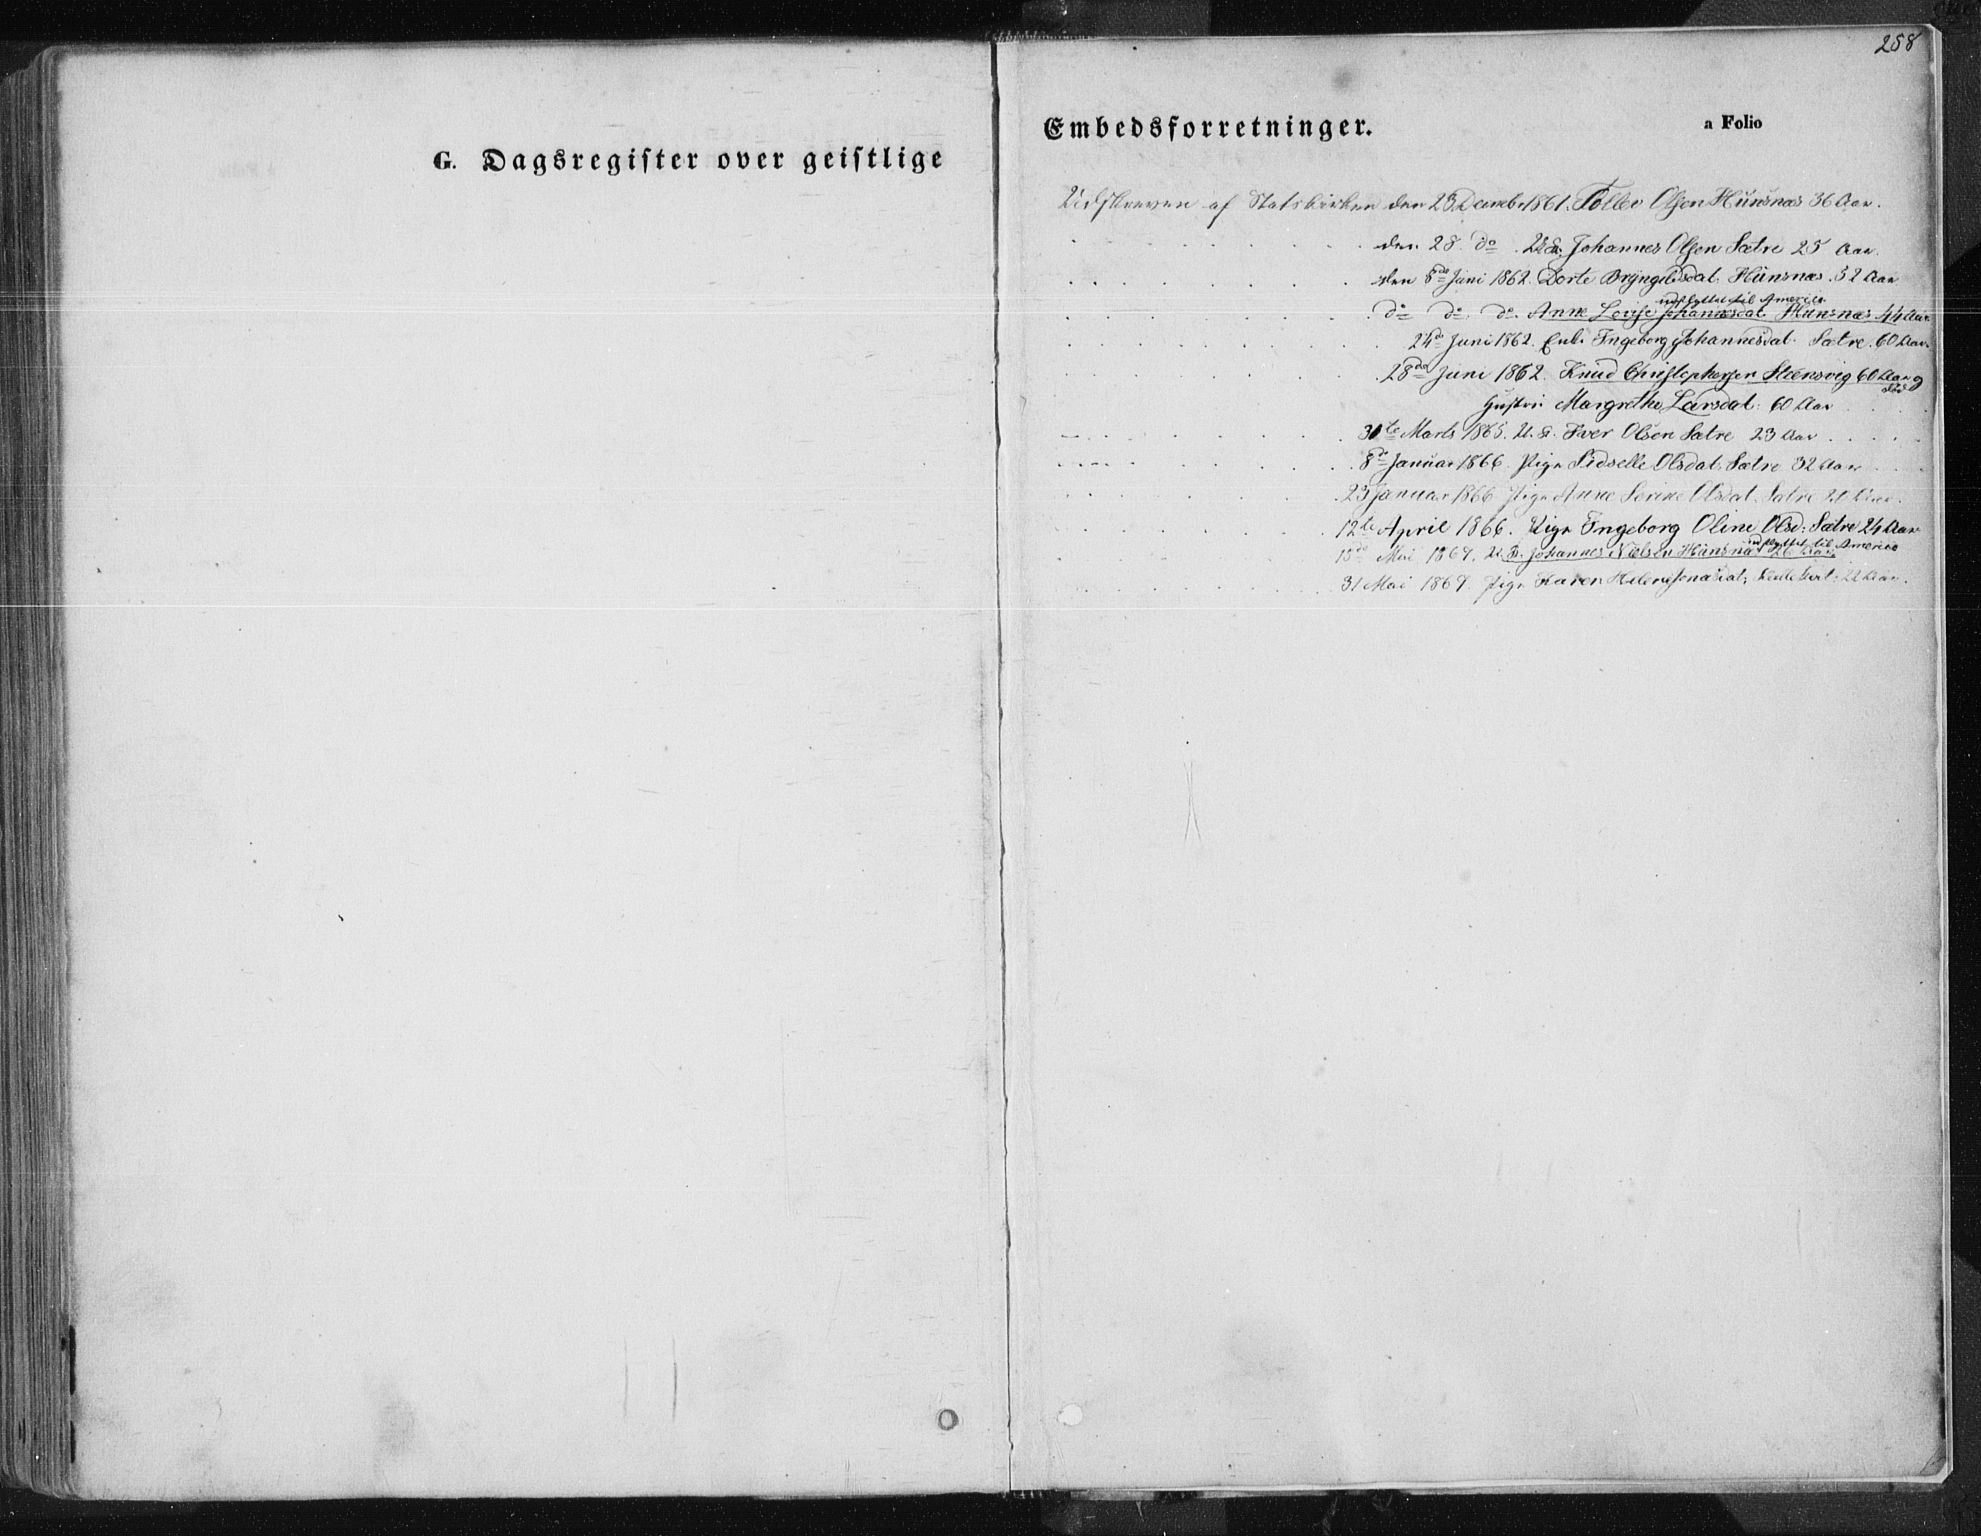 258
G. Dagsregister over geistlige
Embedsforretninger.
a Folio
Udskreven af Statskirken den 23 Decembr 1861. Tollev Olsen Hünsnæs 36 Aar.
den 28 do U. K. Johannes Olsen Sætre 25 Aar.
den 8de Juni 1862. Dorte Bryngelsdat. Hünsnæs. 52 Aar
do do do. Anne Lovise Johannesdat. Hünsnæs 44 Aar.
indflyttet til America
24de Juni 1862. Enke Ingeborg Johannesdat. Sætre. 60 Aar.
28de Juni 1862. Knud Christophersen Steensvig 60 Aar og
død
Hustru Margrethe Larsdat: 60 Aar
31te Marts 1865. U. K. Iver Olsen Sætre 23 Aar
8de Januar 1866. Pige Sidselle Olsdat. Sætre 32 Aar
23 Januar 1866 Pige Anne Serine Olsdat. Sætre 21 Aar.
12te April 1866. Pige Ingeborg Oline Olsd: Sætre 24 Aar
indflyttet til America
15de Mai 1867. U. K. Johannes Nielsen Hünsnæs 26 Aar
31 Mai 1867. Pige Karen Helene Jonasdat: 22 Aar.